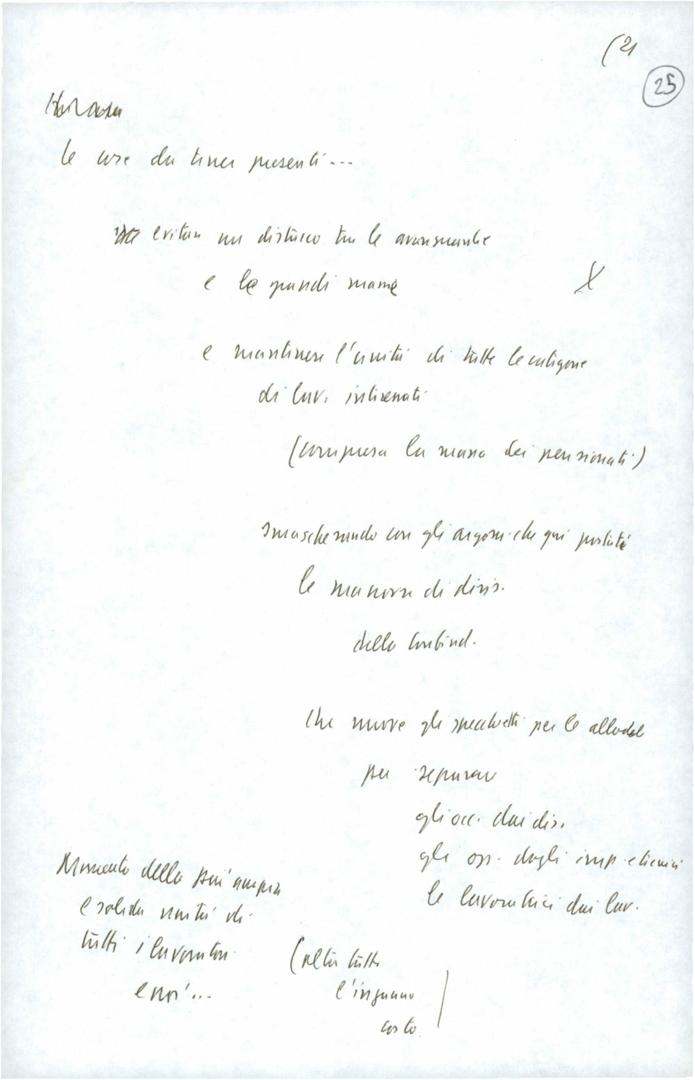 (21
25
le cose da tener presenti...
evitare un distacco tra le avanguardie
e le grandi masse
X
e mantenere l'unità di tutte le categorie
di lav. interessati
(compresa la massa dei pensionati)
smascherando con gli argom. che qui portati
le manovre di divis.
della Confind.
che muove gli specchietti per le allodole
per separare
gli occ. dai dis.
gli op. dagli imp. e tecnici
le lavoratrici dai lav.
Momento della più ampia
e solida unità di
tutti i lavoratori
e noi...
(oltre tutto
l'inganno
costo